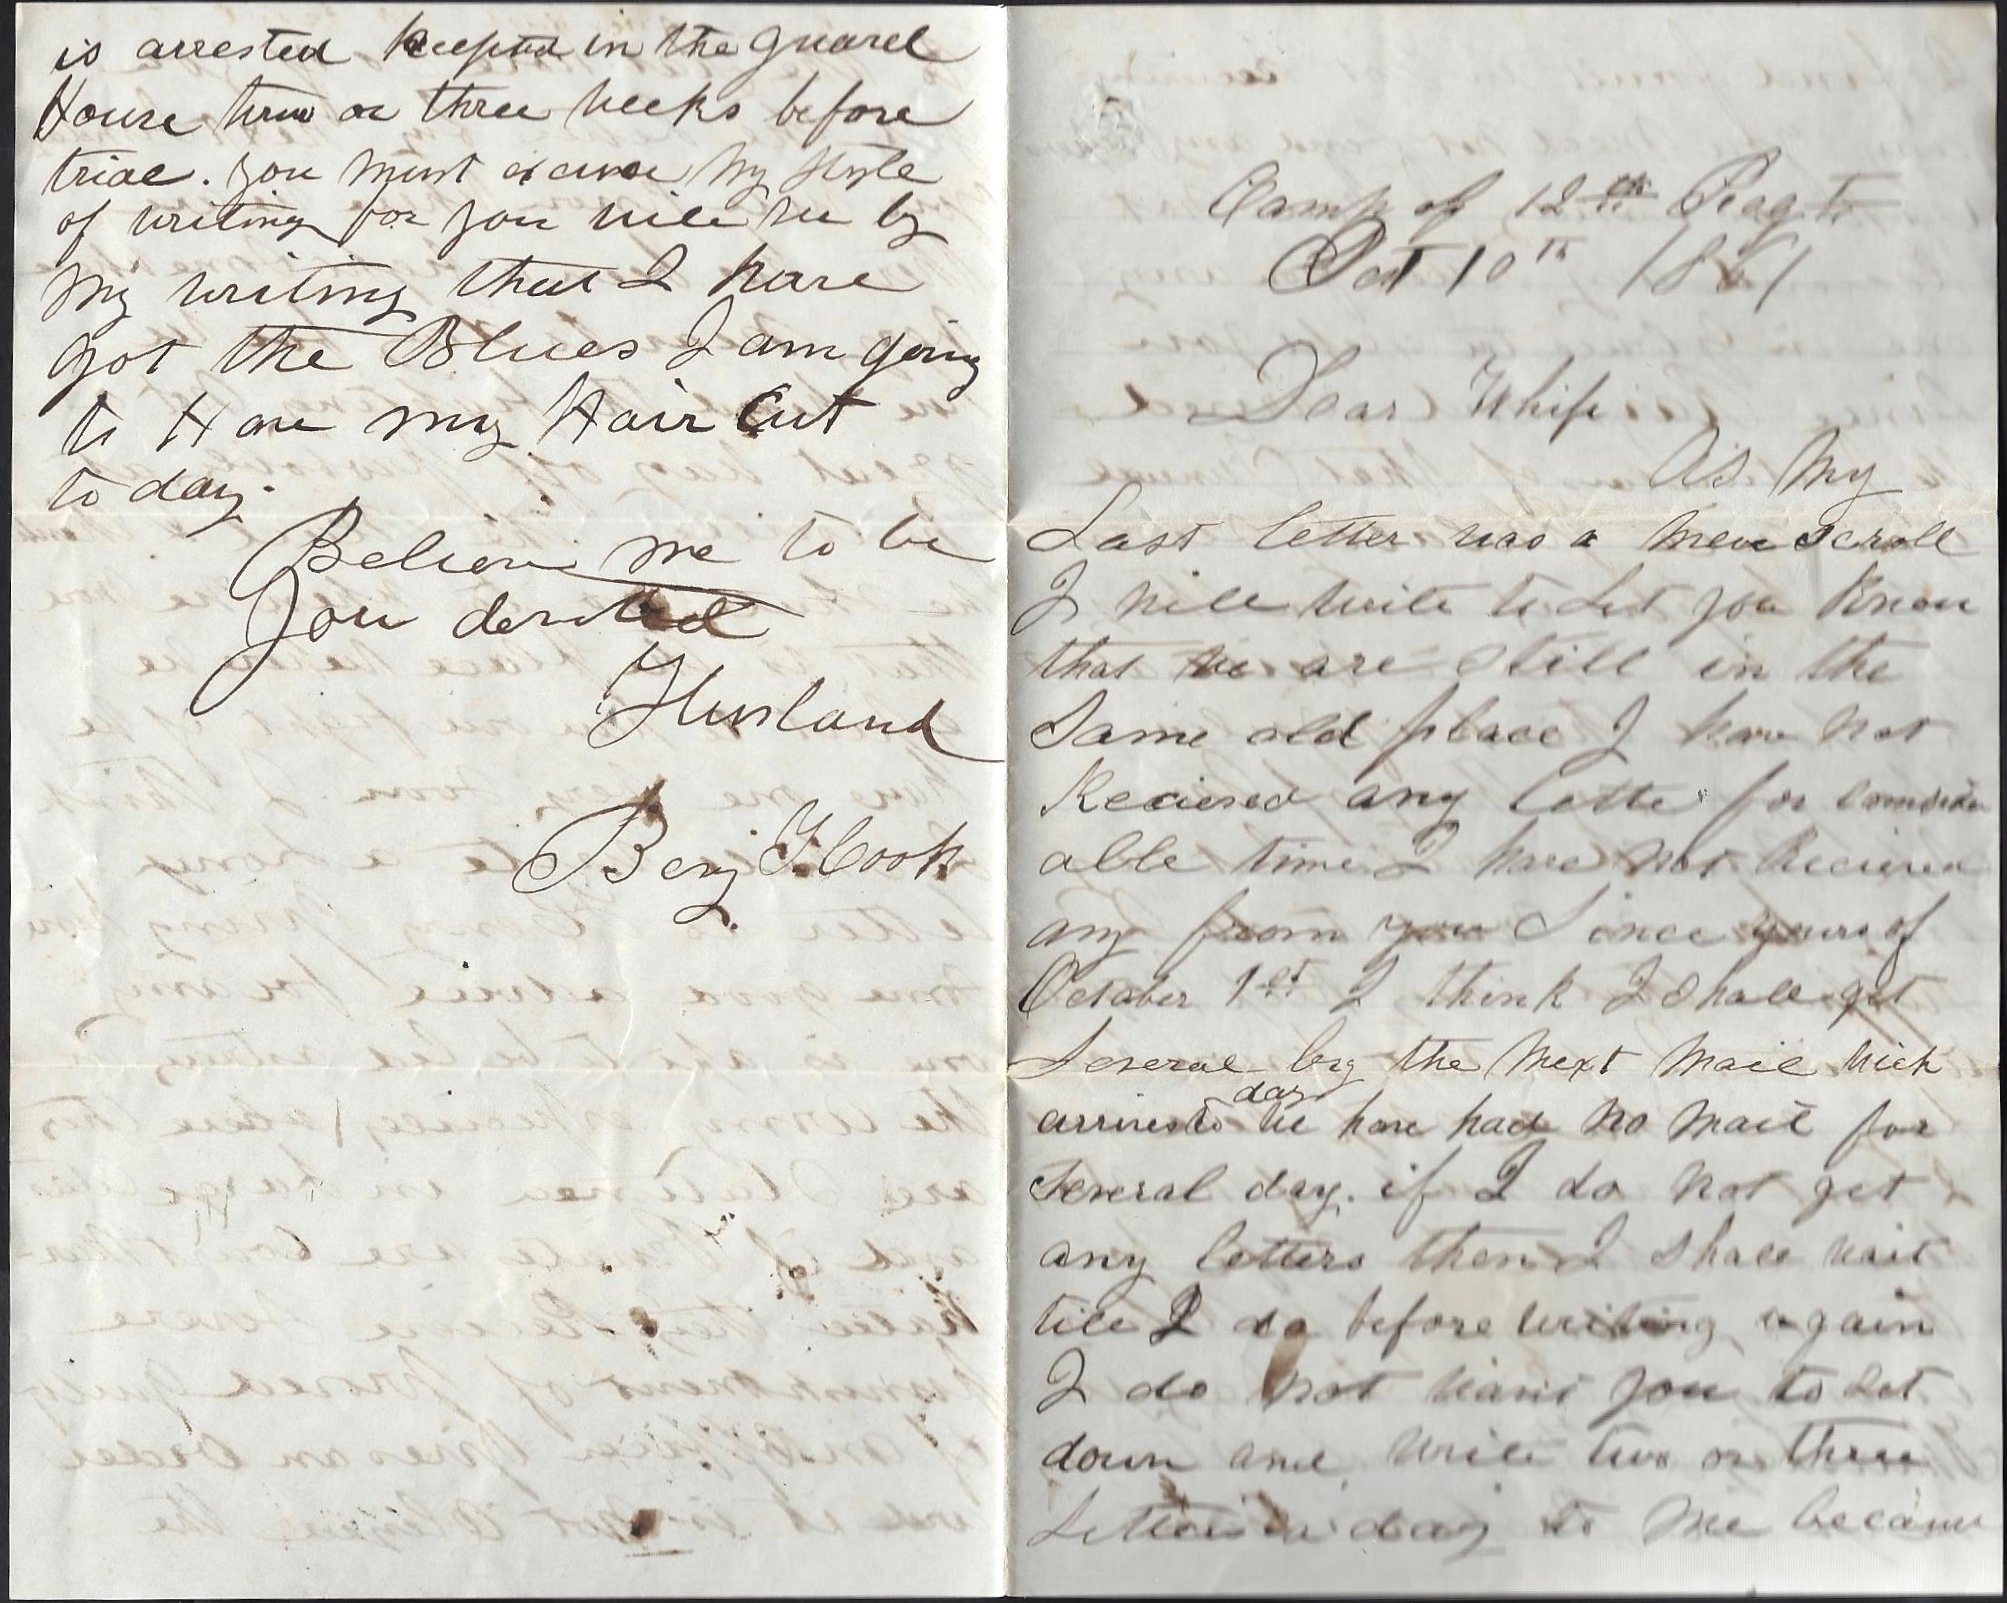 is arrested keept in the guard
House two or three weeks before
trial. you must excuse my style
of writing for you will see by
my writing that I have
got the Blues I am going
to Have my Hair Cut
to day.
Believe me to be
you devoted
Husband
Benj F Cook
Camp of 12th Regt
Oct 10th 1861
Dear Whife
As my
Last letter was a mere scroll
I will write to let you know
that we are still in the
Same old place I have not
Recieved any lette for consider
able time I have not Recieved
any from you Since yours of
October 1st I think I shall get
Several by the next mail wich
arrives to day we have had no mail for
several day. if I do not get
any letters then I shall wait
till I do before writing again
I do not want you to set
down and write two or three
Letters a day to me because